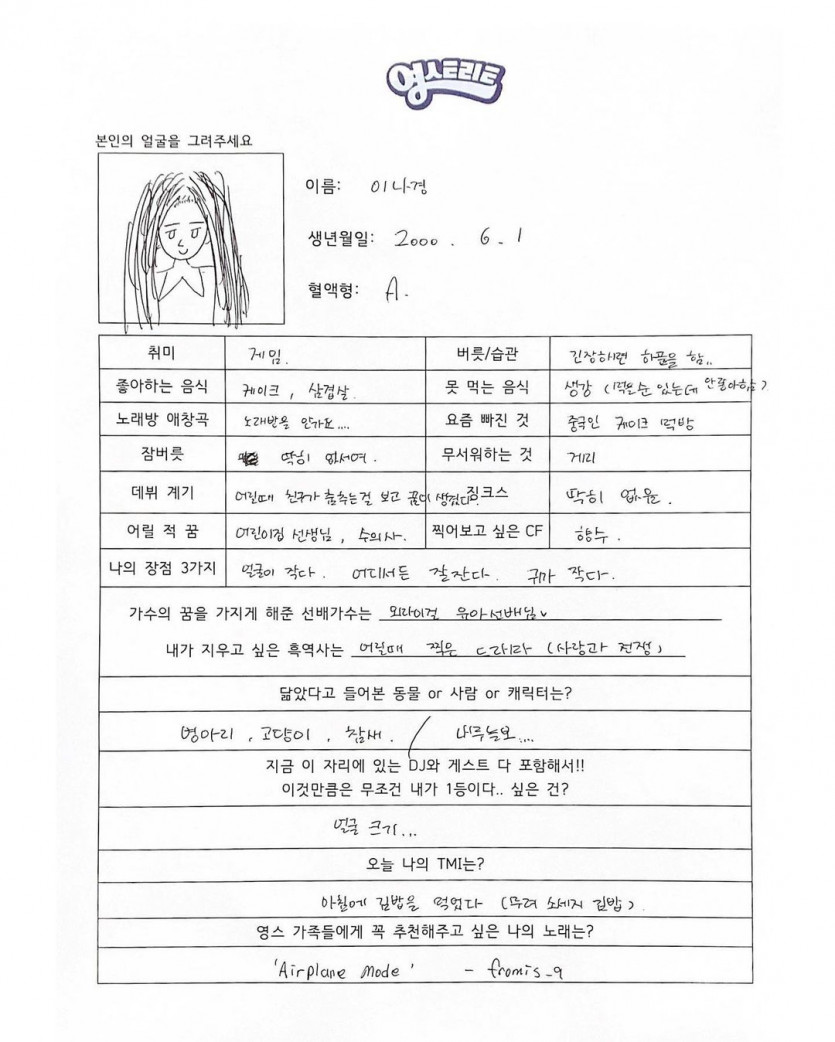 영스트리트
본인의 얼굴을 그려주세요
이름: 이나경
생년월일: 2000. 6. 1
혈액형: A.
취미 게임. 버릇/습관 긴장하면 하품을 함..
좋아하는 음식 케이크, 삼겹살. 못 먹는 음식 생강 (먹을순 있는데 안좋아함)
노래방 애창곡 노래방을 안가요.... 요즘 빠진 것 중국인 케이크 먹방
잠버릇 딱히 없서여. 무서워하는 것 게리
데뷔 계기 어릴때 친구가 춤추는걸 보고 꿈이 생겼다. 징크스 딱히 없음.
어릴 적 꿈 어린이집 선생님, 수의사. 찍어보고 싶은 CF 향수.
나의 장점 3가지 얼굴이 작다. 어디서든 잘잔다. 귀가 작다.
가수의 꿈을 가지게 해준 선배가수는 오마이걸 유아선배님
내가 지우고 싶은 흑역사는 어릴때 찍은 드라마 (사랑과 전쟁)
닮았다고 들어본 동물 or 사람 or 캐릭터는?
병아리, 고양이, 참새. / 나무늘보....
지금 이 자리에 있는 DJ와 게스트 다 포함해서!!
이것만큼은 무조건 내가 1등이다.. 싶은 건?
얼굴 크기...
오늘 나의 TMI는?
아침에 김밥을 먹었다 (무려 소세지 김밥).
영스 가족들에게 꼭 추천해주고 싶은 나의 노래는?
'Airplane Mode' - fromis_9